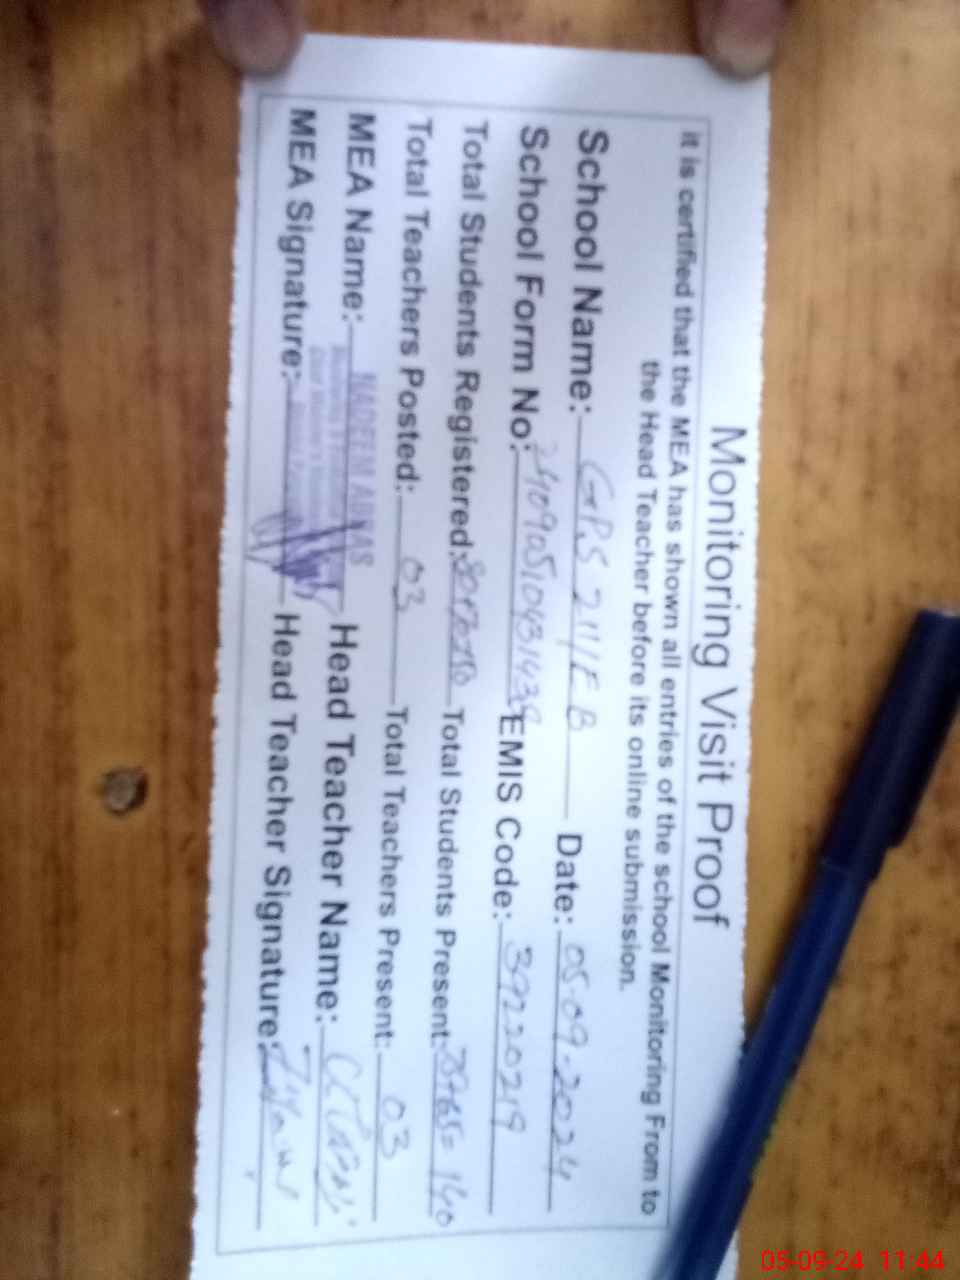 Monitoring Visit Proof
it is certified that the MEA has shown all entries of the school Monitoring From to
the Head Teacher before its online submission.
School Name: GPS 211/EB Date: 05-09-2024
School Form No: EMIS Code: 39220219
Total Students Registered: Total Students Present: =140
Total Teachers Posted: 03 Total Teachers Present: 03
MEA Name: NADEEM ABBAS Head Teacher Name:
MEA Signature: Head Teacher Signature:
05-09-24 11:44